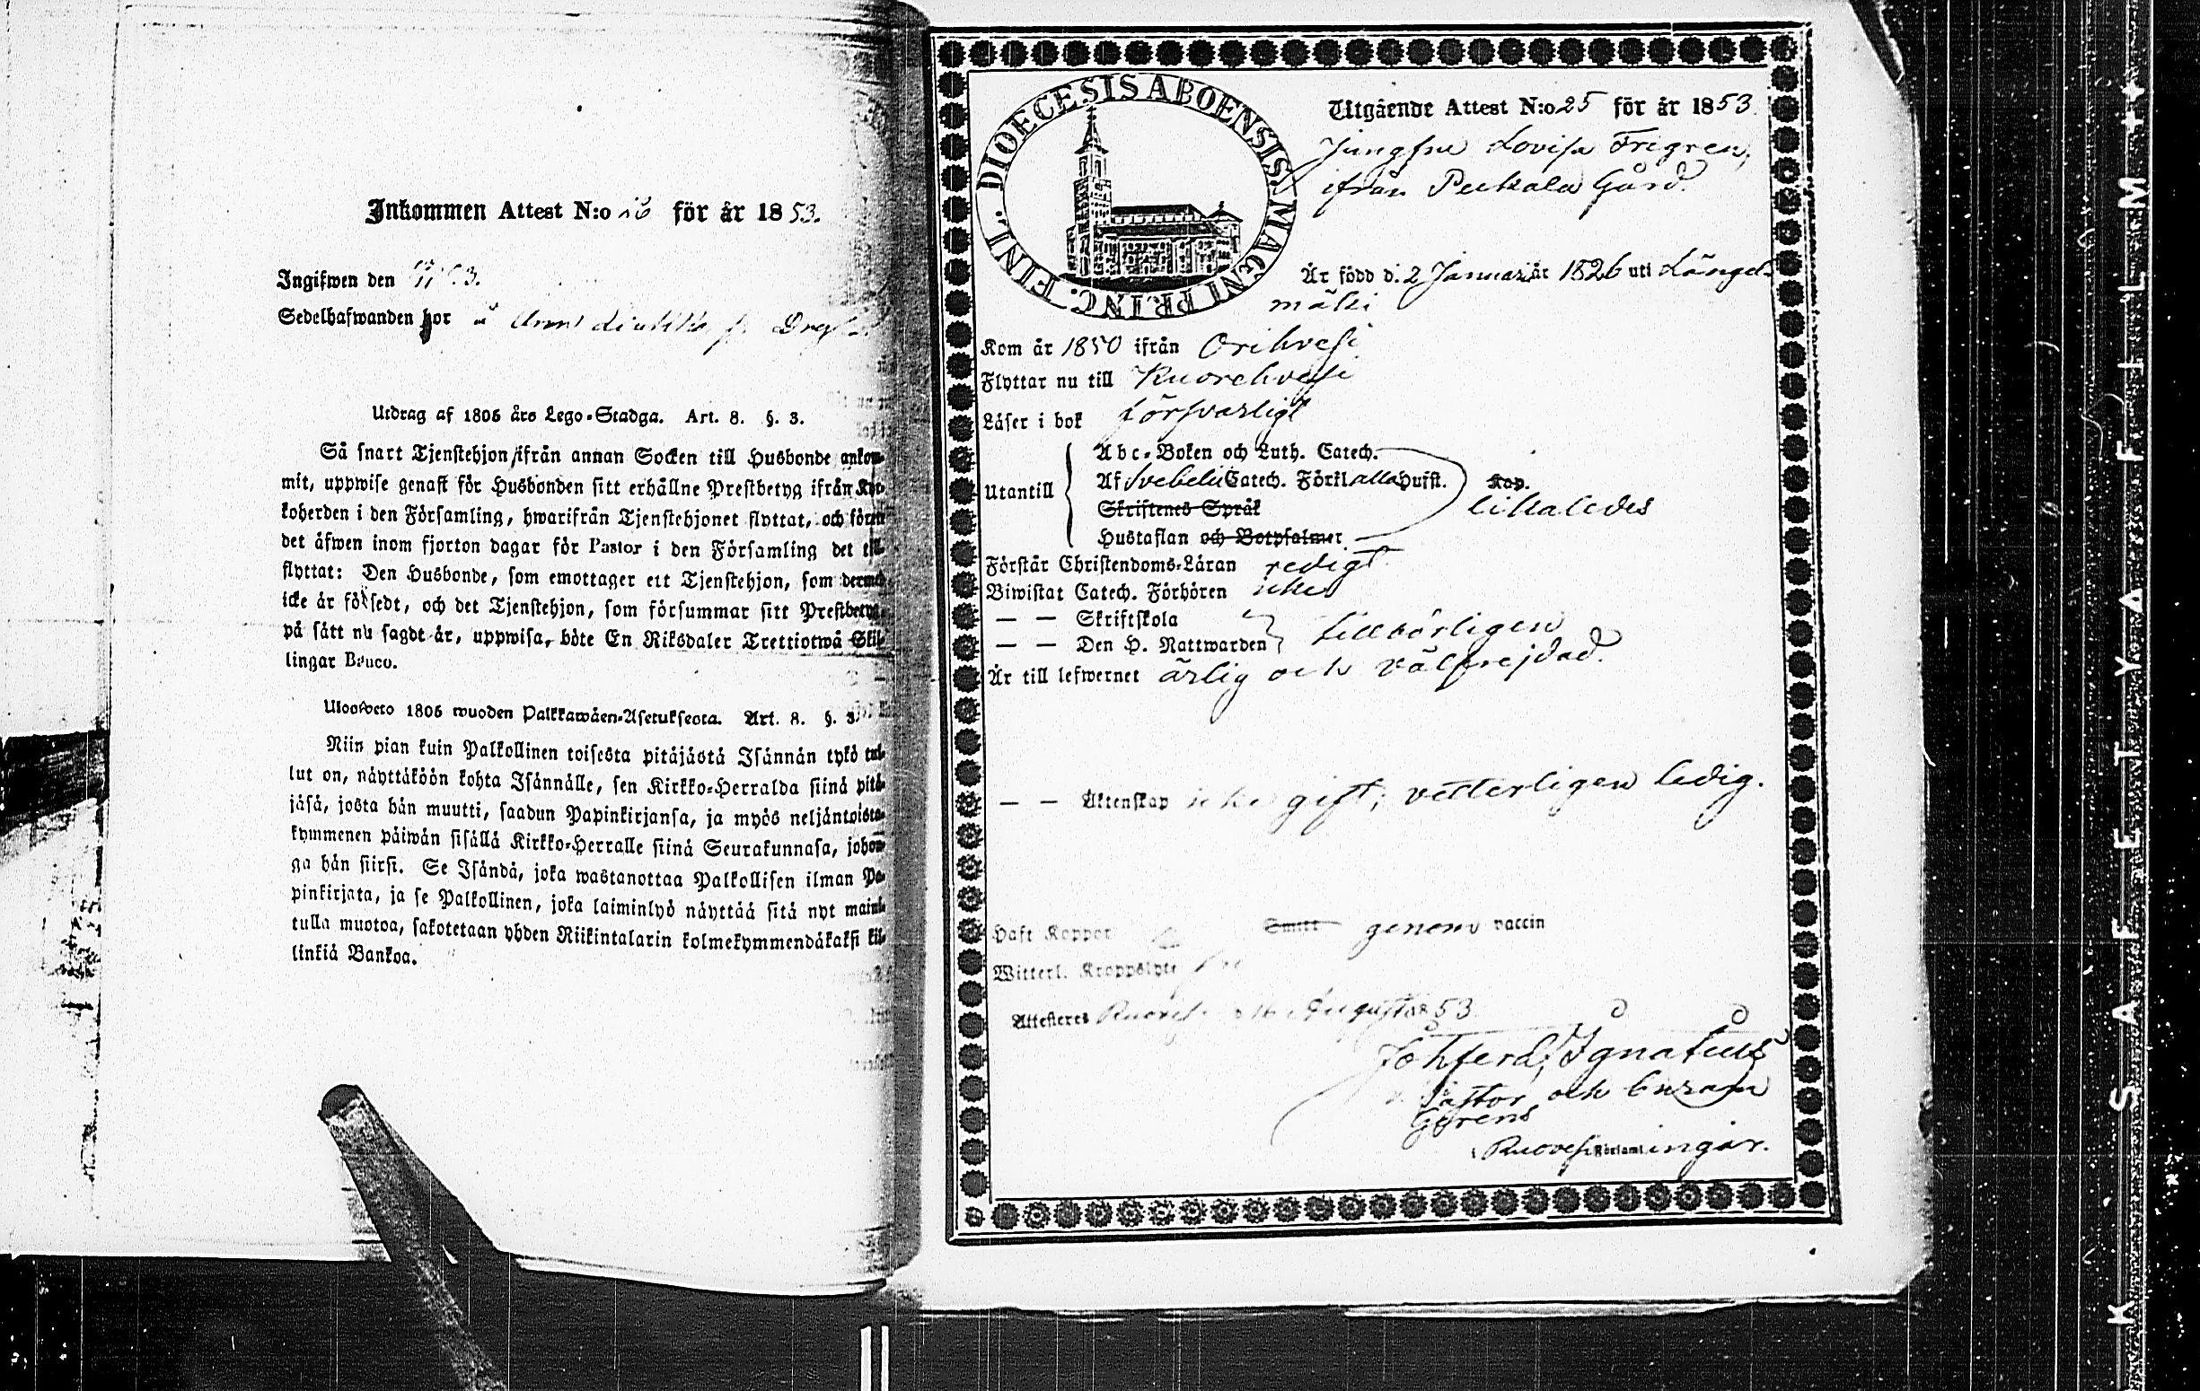 Inkommen Attest N:o för år 1853.
Ingifwen den
Sedelhafwanden hor å
Utdrag af 1805 års Lego-Stadga. Art. 8. §. 3.
Så snart Tjenstehjon ifrån annan Socken till Husbonde ankom-
mit, uppwise genast för Husbonden sitt erhållne Prestbetyg ifrån Kyr-
koherden i den Församling, hwarifrån Tjenstehjonet flyttat, och förete
det äfwen inom fjorton dagar för Pastor i den Församling det till-
flyttat: Den Husbonde, som emottager ett Tjenstehjon, som dermed
icke är försedt, och det Tjenstehjon, som försummar sitt Prestbetyg,
på sätt nu sagdt är, uppwisa, böte En Riksdaler Trettiotwå Skil-
lingar Banco.
Ulosweto 1805 wuoden Palkkawäen-Asetuksesta. Art. 8. §. 3.
Niin pian kuin Palkollinen toisesta pitäjästä Isännän tykö tul-
lut on, näyttäköön kohta Isännälle, sen Kirkko-Herralda siinä pitä-
jäsä, josta hän muutti, saadun Papinkirjansa, ja myös neljäntoista-
kymmenen päiwän sisällä Kirkko-Herralle siinä Seurakunnasa, johon-
ga hän siirsi. Se Isändä, joka wastanottaa Palkollisen ilman Pa-
pinkirjata, ja se Palkollinen, joka laiminlyö näyttää sitä nyt maini-
tulla muotoa, sakotetaan yhden Riikintalarin kolmekymmendäkaksi kil-
linkiä Bankoa.
DIOECESIS ABOENSIS. MAGNI PRINC. FINL.
Utgående Attest N:o 25 för år 1853.
Jungfru Lovisa Fregren,
ifrån Pekkala Gård.
Är född d. 2 Januari år 1826 uti Längel-
mäki
Kom år 1850 ifrån Orihvesi
Flyttar nu till Kuorehvesi
Läser i bok försvarligt
Utantill
Abc-Boken och Luth. Catech.
Af Svebelii Catech. Förkl alla Hufst. Kap.
Skriftenes Språk likaledes
Hustaflan och Botpsalmer
Förstår Christendoms-Läran redigt
Biwistat Catech. Förhören icke
— — Skriftskola
— — Den H. Nattwarden tillbörligen
Är till lefwernet ärlig och välfrejdad.
— — Äktenskap icke gift; vetterligen ledig.
Haft Koppor Smitt genom vaccin
Witterl. Kroppslyte
Attesteras Ruovesi Augusti 1853
Joh. Ferd. Ignatius
Pastor och Curam
Gerens
i Ruovesi Församlingar.
KSAFETY FILM